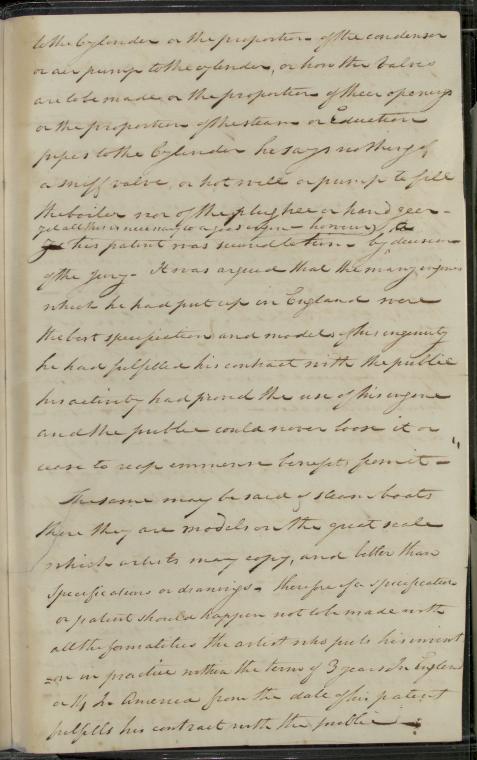 to the Cylender or the proportion of the condensor
or air pump to the cylender, or how the Valves
are to be made or the proportion of their openings
or the proportion of the steam or Eduction
pipes to the Cylender he says nothing of
a sniff valve, or hot well or pump to fill
the boiler nor of the plug tree or hand geer -
yet all this is necessary to a good engine - honour
his patent was secured to him by decision
of the jury - It was argued that the many engines
which he had put up in England were
the best specification and models of his ingenuity
he had fulfilled his contract with the public
his activity had proved the use of his engine
and the public could never loose it or
cease to reap emmense benefits from it - "
The same may be said of steam boats
there they are models on the great scale
which artists may copy, and better than
specifications or drawings - therefore if a specification
or patent should happen not to be made with
all the formalities the artist who puts his invent
=on in practice within the term of 3 years In England
or 4 In America from the date of his patent
fulfills his contract with the public -